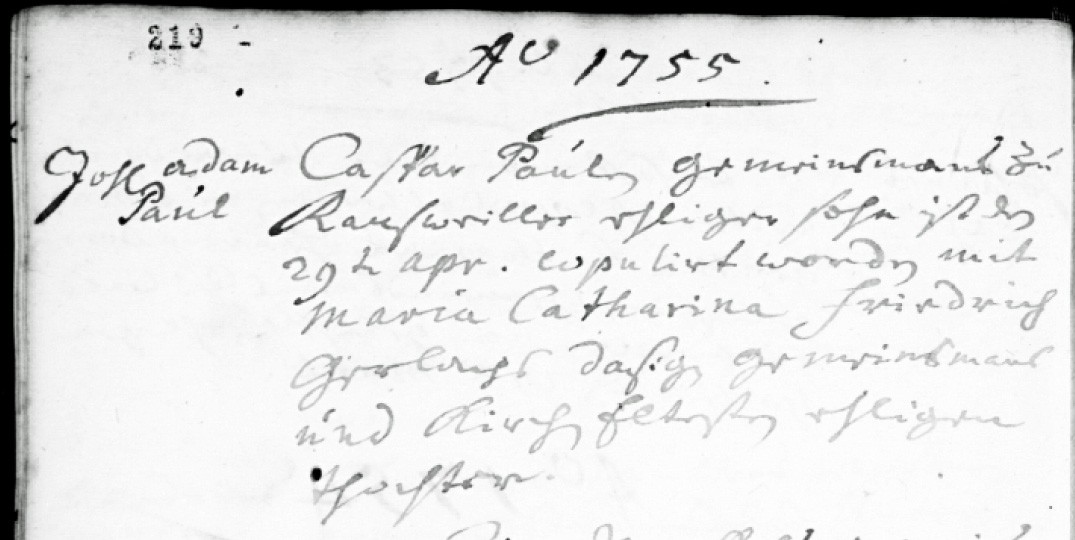 219 -
Aо 1755.
Joh adam Caspar Paulen gemeinsmans zu
Paul Ransweiller ehliger sohn ist den
29t apr. copulirt worden mit
Maria Catharina Friedrich
Gerlachs dasigen gemeinsmans
und Kirchen Eltesten ehligen
thochter.